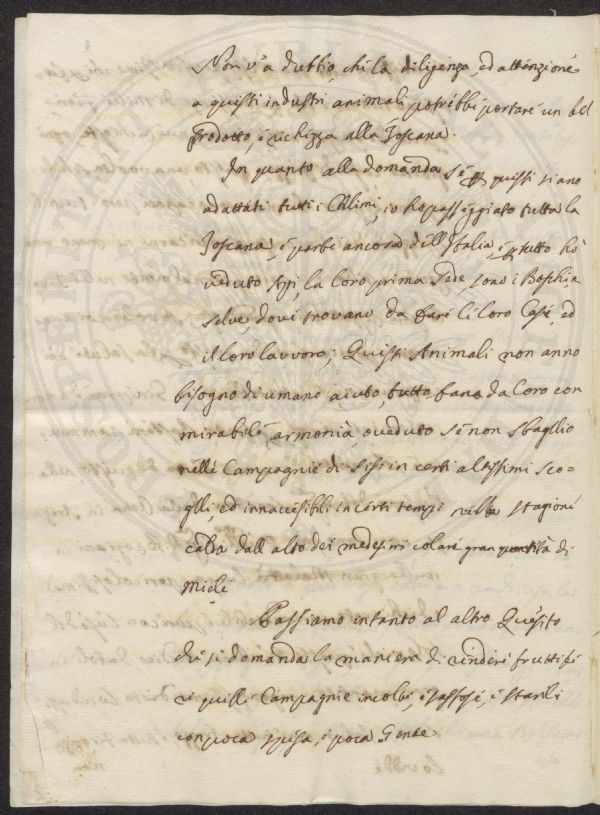 Non v'a dubbio, che la diligenza, ed attenzione
a questi industri animali potrebbe portare un bel
Prodotto, e richezza alla Toscana.
In quanto alla domanda se p questi siano
adattati tutti i Climi, io ho passeggiato tutta la
Toscana, e parte ancora dell'Italia, e p tutto hò
veduto Api, la loro prima Sede, sono i Boschi, e
selve, dove trovano da fare le loro Case, ed
il loro lavvoro; Questi Animali non anno
bisogno di umano aiuto, tutto fano da Loro con
mirabile armonia, o veduto se non sbagllio
nelle Campagnie di in certi altissimi sco=
glli, ed innaccesibili in certi tempi nella stagione
calda dall alto dei medesimi colare gran quantità di
miele
Passiamo intanto al altro Quesito
che si domanda la maniera di rendere fruttife
re quelle Campagnie incolte, e sassose, e sterili
con poca spesa, e poca Gente